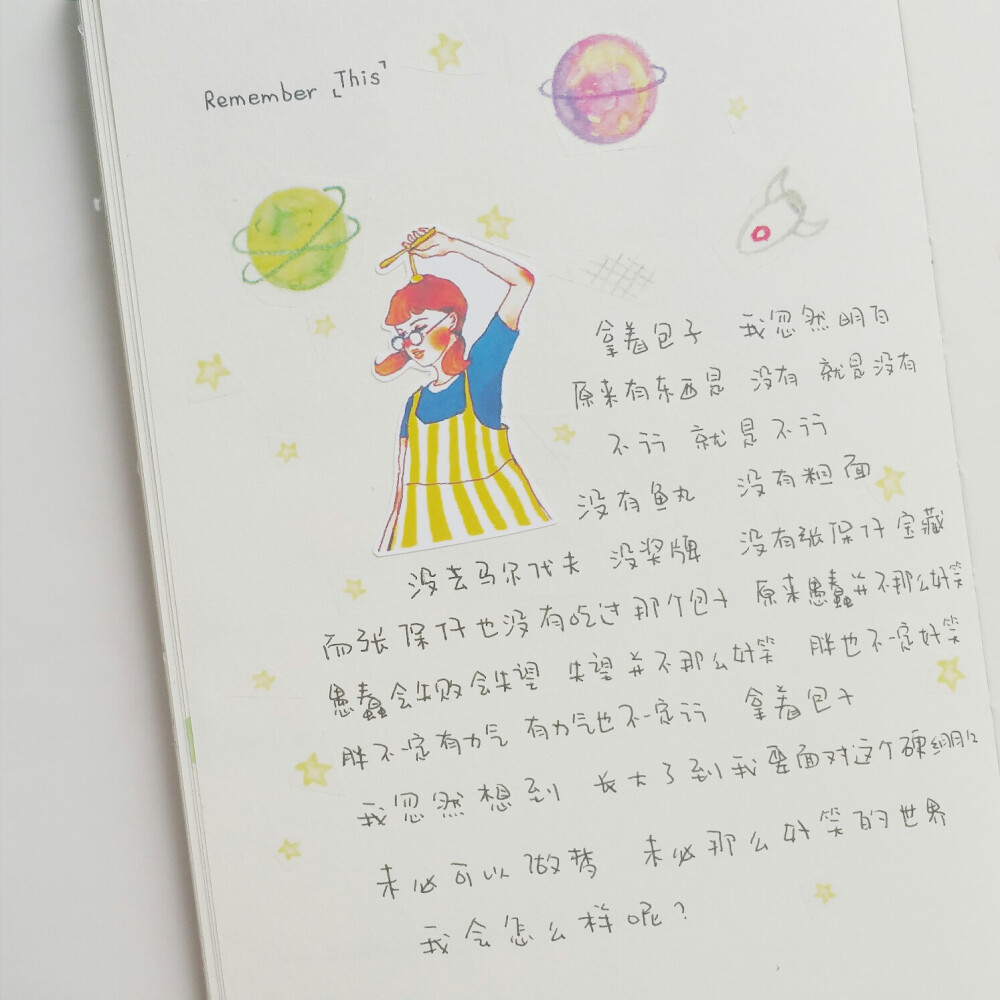 Remember 「This」
拿着包子 我忽然明白
原来有东西是 没有 就是没有
不行 就是不行
没有鱼丸 没有粗面
没去马尔代夫 没奖牌 没有张保仔宝藏
而张保仔也没有吃过那个包子 原来愚蠢并不那么好笑
愚蠢会失败会失望 失望并不那么好笑 胖也不一定好笑
胖不一定有力气 有力气也不一定行 拿着包子
我忽然想到 长大了到我要面对这个硬绷绷
未必可以做梦 未必那么好笑的世界
我会怎么样呢?